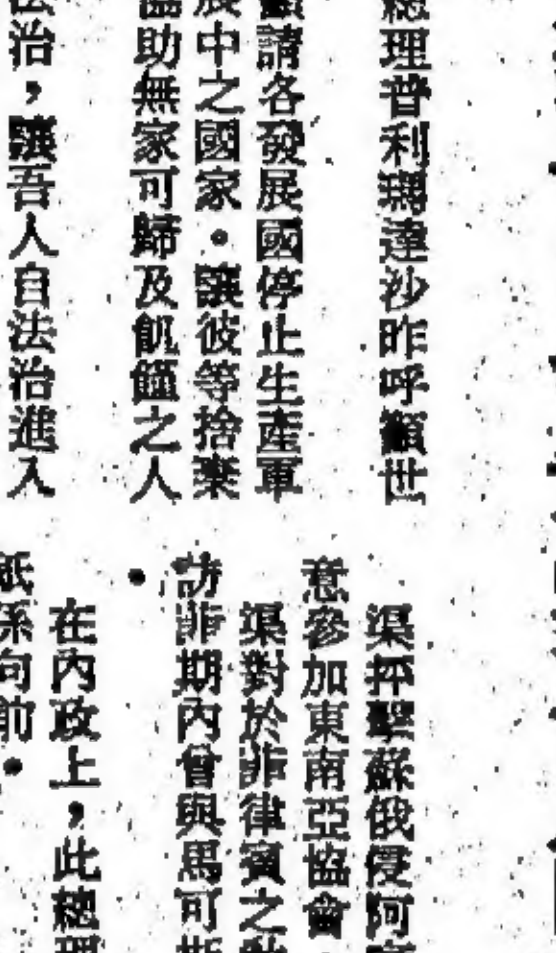 總理普利瑪達沙昨呼籲世
籲請各發展國停止生產軍
展中之國家。讓彼等捨棄
協助無家可歸及飢餓之人
法治，讓吾人自法治進入
渠抨擊蘇俄侵阿富
意參加東南亞協會
渠對於非律賓之
訪非期內曾與馬可斯
。
在內政上，此總理
祇係向前。